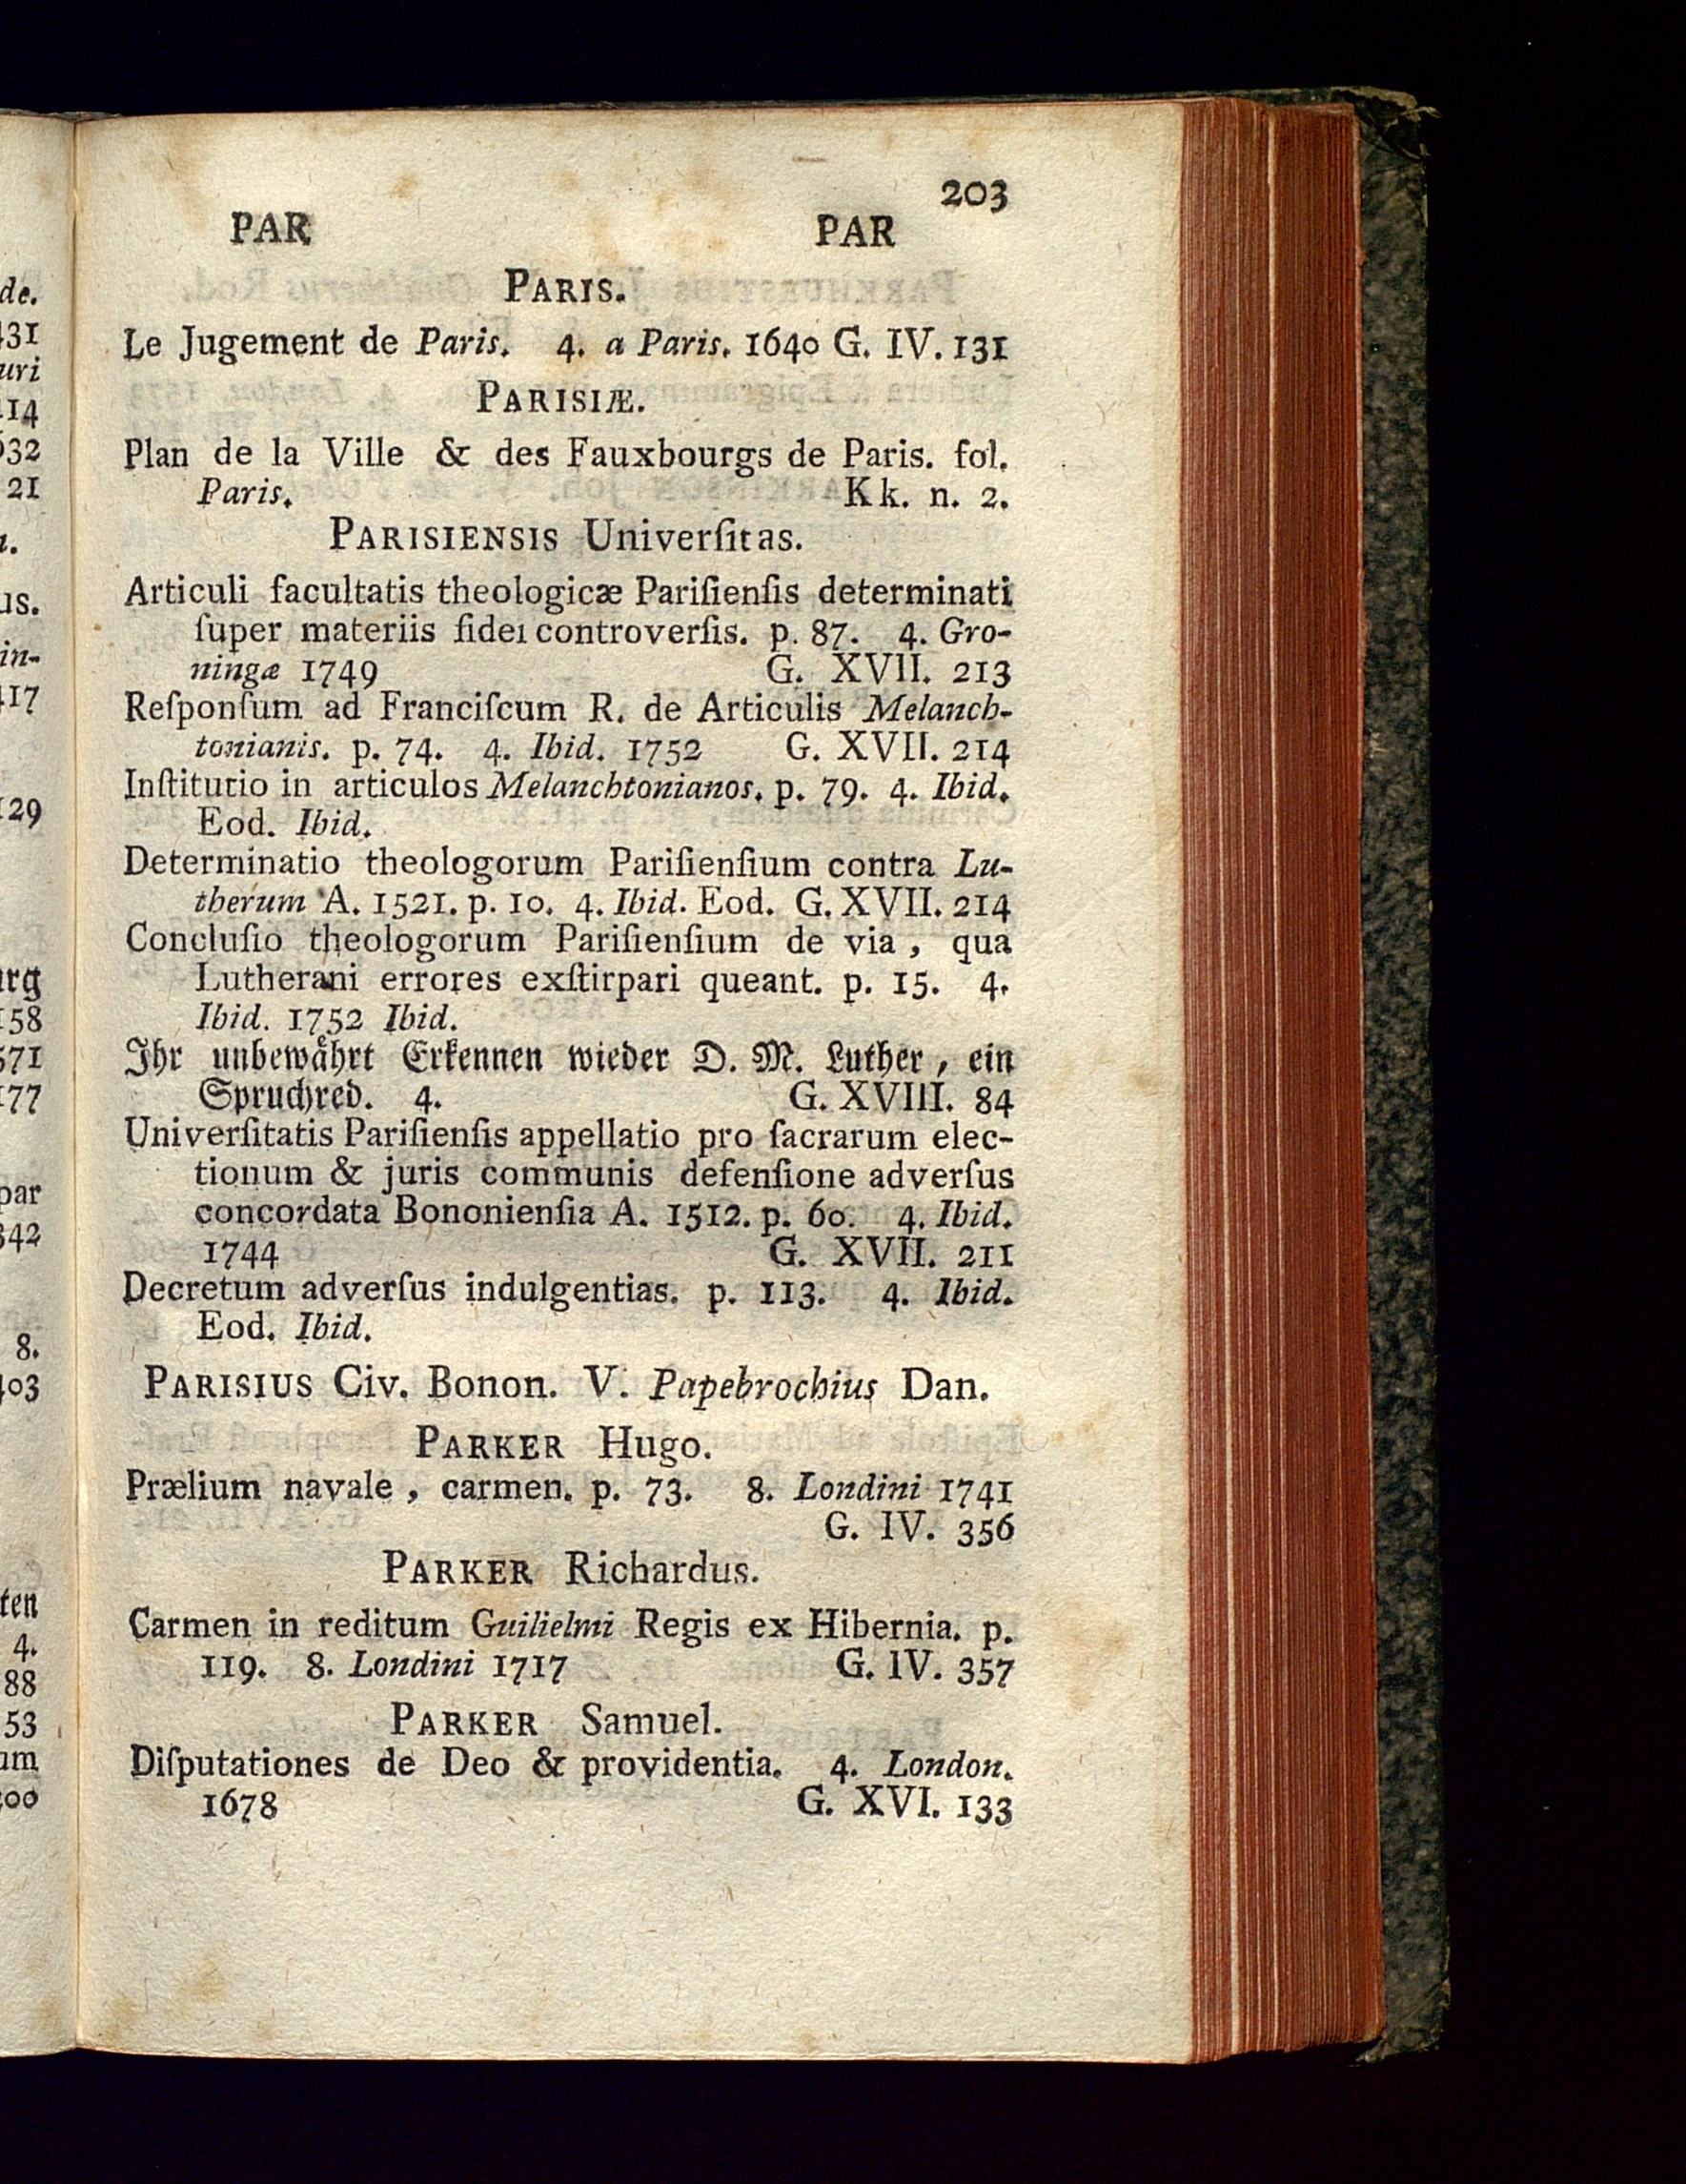 203
PAR PAR
PARIS.
Le Jugement de Paris. 4. a Paris. 1640 G. IV. 131
PARISIÆ.
Plan de la Ville & des Fauxbourgs de Paris. fol.
Paris. Kk. n. 2.
PARISIENSIS Univerſitas.
Articuli facultatis theologicæ Pariſienſis determinati
ſuper materiis fidei controverſis. p. 87. 4. Gro-
ningæ 1749 G. XVII. 213
Reſponſum ad Franciſcum R. de Articulis Melanch-
tonianis. p. 74. 4. Ibid. 1752 G. XVII. 214
Inſtitutio in articulos Melanchtonianos. p. 79. 4. Ibid.
Eod. Ibid.
Determinatio theologorum Pariſienſium contra Lu-
therum A. 1521. p. 10. 4. Ibid. Eod. G. XVII. 214
Concluſio theologorum Pariſienſium de via, qua
Lutherani errores exſtirpari queant. p. 15. 4.
Ibid. 1752 Ibid.
Ihr unbewährt Erkennen wieder D. M. Luther, ein
Spruchred. 4. G. XVIII. 84
Univerſitatis Pariſienſis appellatio pro ſacrarum elec-
tionum & juris communis defenſione adverſus
concordata Bononienſia A. 1512. p. 60. 4. Ibid.
1744 G. XVII. 211
Decretum adverſus indulgentias. p. 113. 4. Ibid.
Eod. Ibid.
PARISIUS Civ. Bonon. V. Papebrochius Dan.
PARKER Hugo.
Prælium navale, carmen. p. 73. 8. Londini 1741
G. IV. 356
PARKER Richardus.
Carmen in reditum Guilielmi Regis ex Hibernia. p.
119. 8. Londini 1717 G. IV. 357
PARKER Samuel.
Diſputationes de Deo & providentia. 4. London.
1678 G. XVI. 133